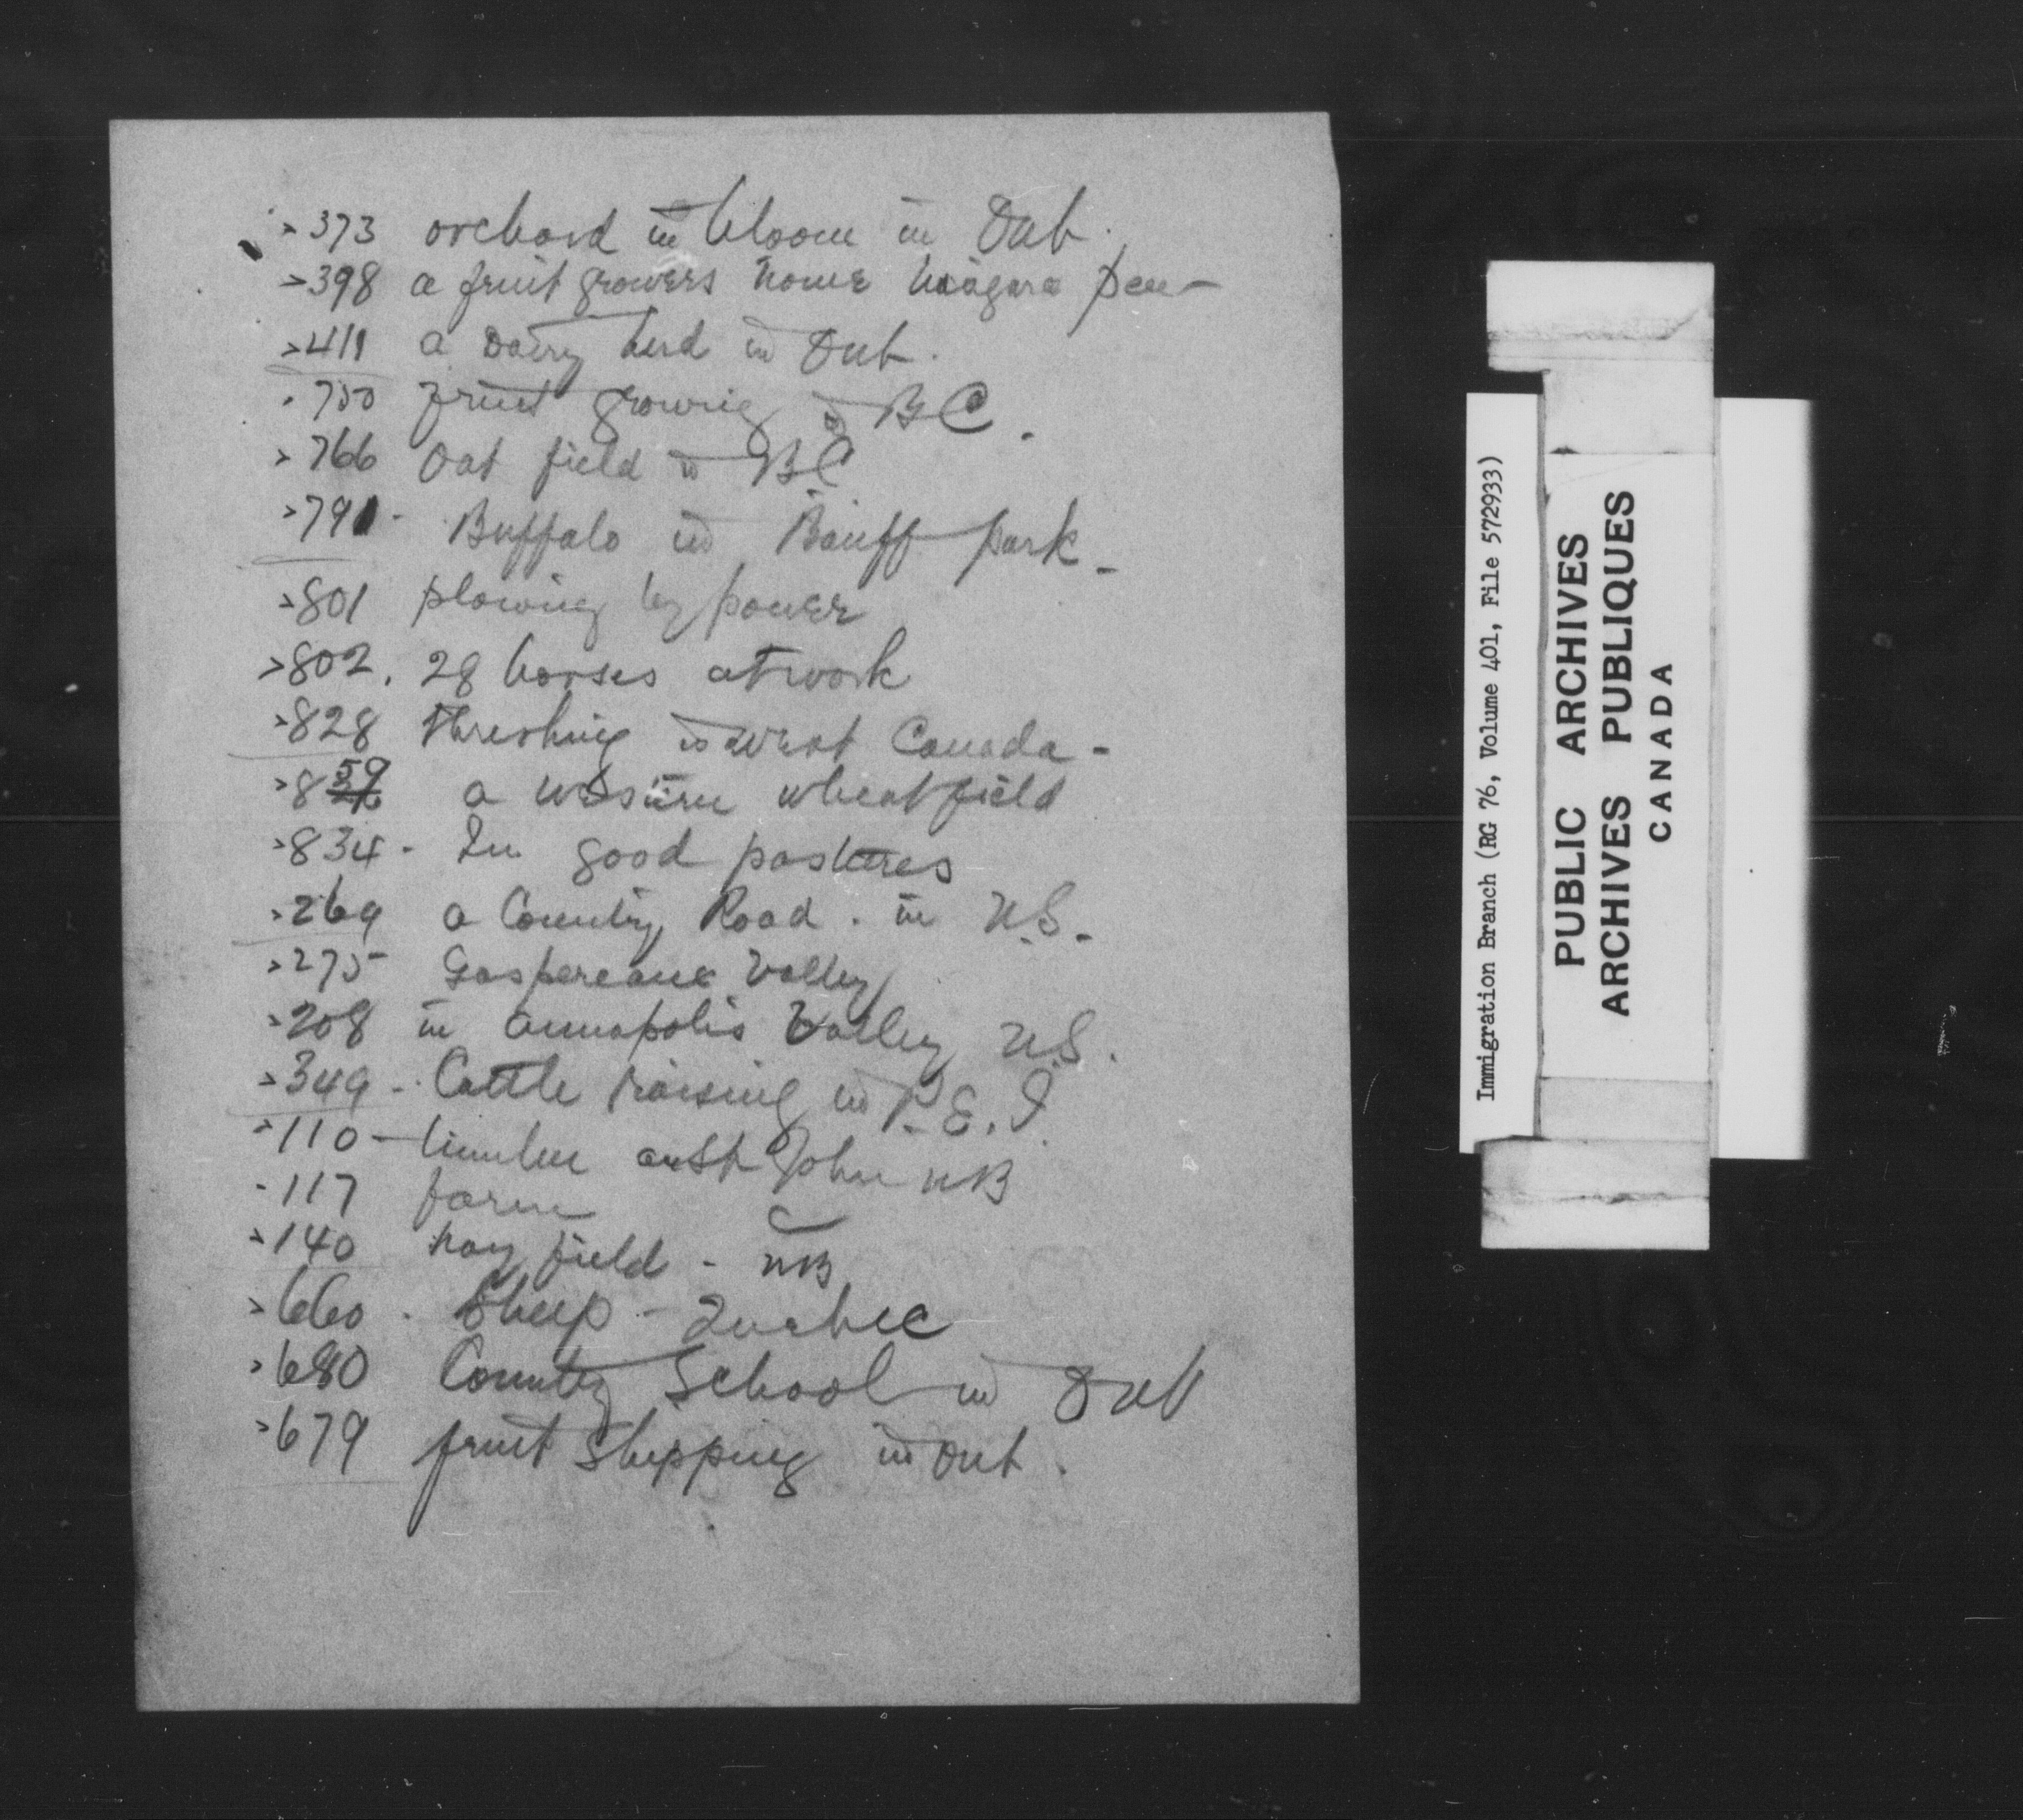 373 orchard in bloom in Ont.
398 a fruit growers home Niagara Pen-
411 a Dairy herd in Ont.
750 fruit growing in BC.
766 Oat field in BC
791 - Buffalo in Banff park -
801 plowing by power
802. 28 horses at work
828 Threshing in West Canada -
859 a western wheat field
834 - In good pastures
269 a Country Road. in N.S.-
275 Gaspereaux Valley
208 in Annapolis Valley N.S.
349 - Cattle raising in P.E.I.
110 - timber St John NB
117 farm
140 hay field - NB
660 - Sheep - Quebec
680 Country School in Ont
679 fruit Shipping in Ont.
Immigration Branch (RG 76, Volume 401, File 572933)
PUBLIC ARCHIVES
ARCHIVES PUBLIQUES
CANADA